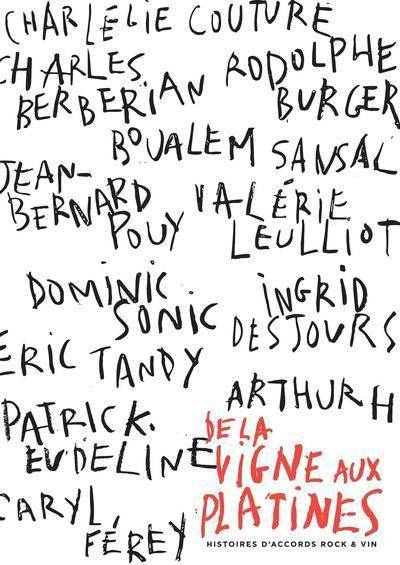 CHARLÉLIE COUTURE
CHARLES
BERBERIAN
RODOLPHE
BURGER
BOUALEM SANSAL
JEAN-
BERNARD
POUY
VALÉRIE
LEULLIOT
DOMINIC
SONIC
INGRID
DESJOURS
ERIC TANDY
ARTHUR H
PATRICK
EUDELINE
DE LA
VIGNE AUX
PLATINES
CARYL
FÉREY
HISTOIRES D'ACCORDS ROCK & VIN